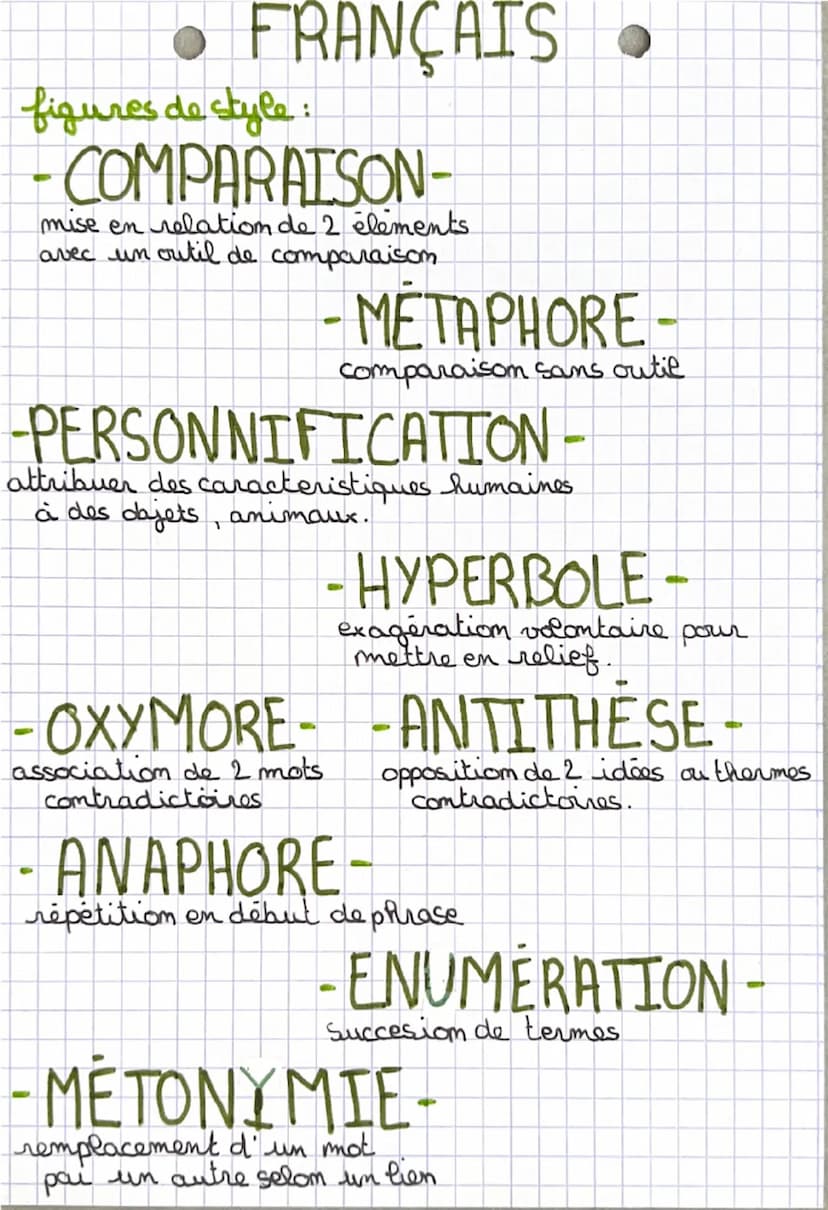 FRANÇAIS
figures de style :
- COMPARAISON -
mise en relation de 2 éléments
avec un outil de comparaison
- MÉTAPHORE -
comparaison sans outil
- PERSONNIFICATION -
attribuer des caracteristiques humaines
à des objets, animaux.
- HYPERBOLE -
exagération volontaire pour
mettre en relief.
- OXYMORE -
association de 2 mots
contradictoires
- ANTITHÈSE -
opposition de 2 idées ou thermes
contradictoires.
- ANAPHORE -
répétition en début de phrase
- ENUMÉRATION -
Succesion de termes
- MÉTONYMIE -
remplacement d'un mot
par un autre selon un lien